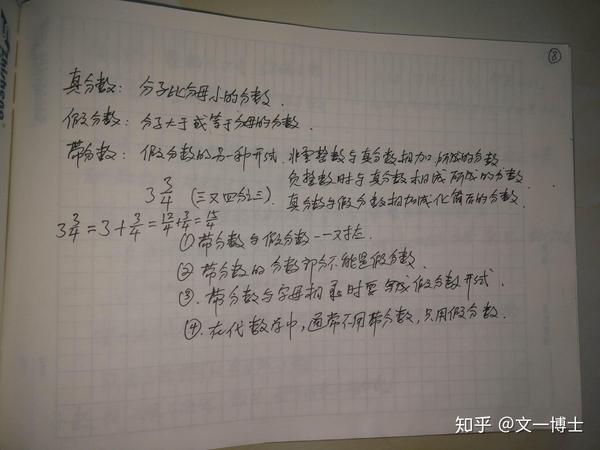 ⑧
真分数：分子比分母小的分数.
假分数：分子大于或等于分母的分数.
带分数：假分数的另一种形式.非零整数与真分数相加所成的分数
负整数时与真分数相减所成的分数.
3 3/4 (三又四分之三).真分数与假分数相加减化简后的分数.
3 3/4 = 3 + 3/4 = 12/4 + 3/4 = 15/4
①带分数与假分数一一对应.
②带分数的分数部分不能是假分数.
③.带分数与字母相乘时要写成假分数形式.
④.在代数存中,通常不用带分数,只用假分数.
知乎 @文一博士